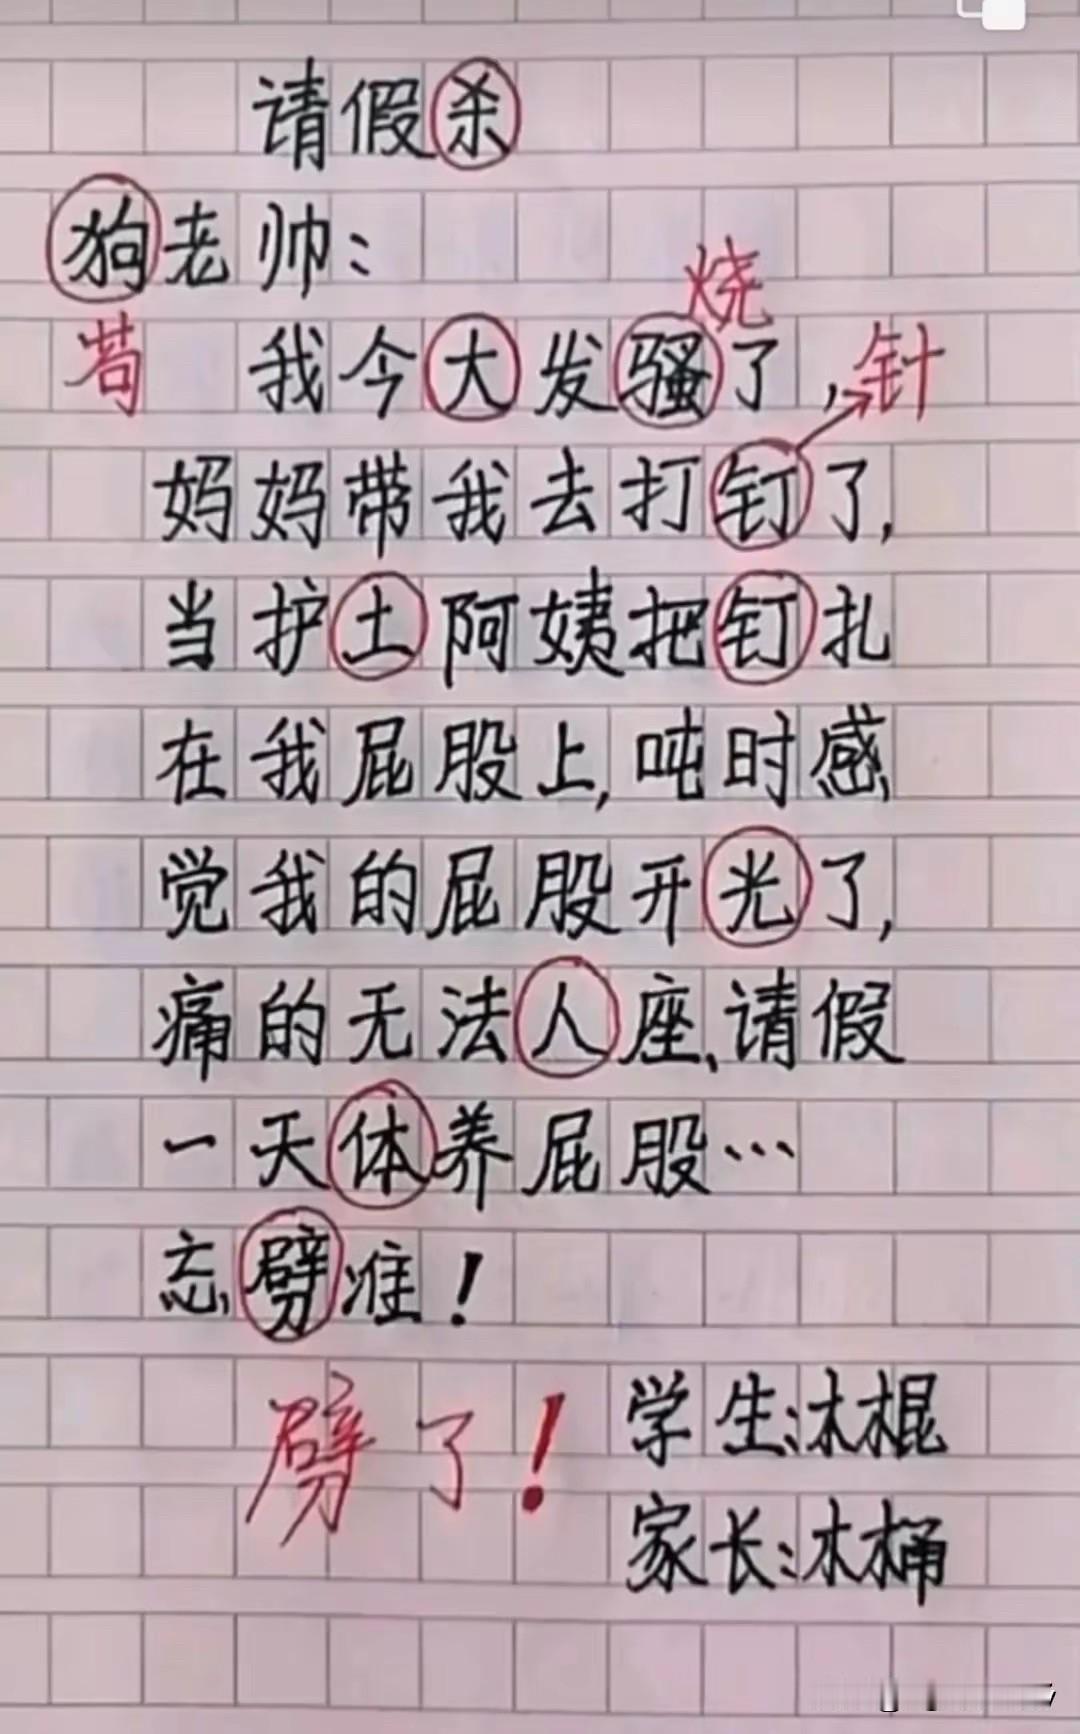 请假杀
狗老帅：
烧
苟 我今大发骚了，针
妈妈带我去打钉了，
当护土阿姨把钉扎
在我屁股上，吨时感
觉我的屁股开光了，
痛的无法人座、请假
一天体养屁股…
忘劈准！
劈了！ 学生：木棍
家长：木桶